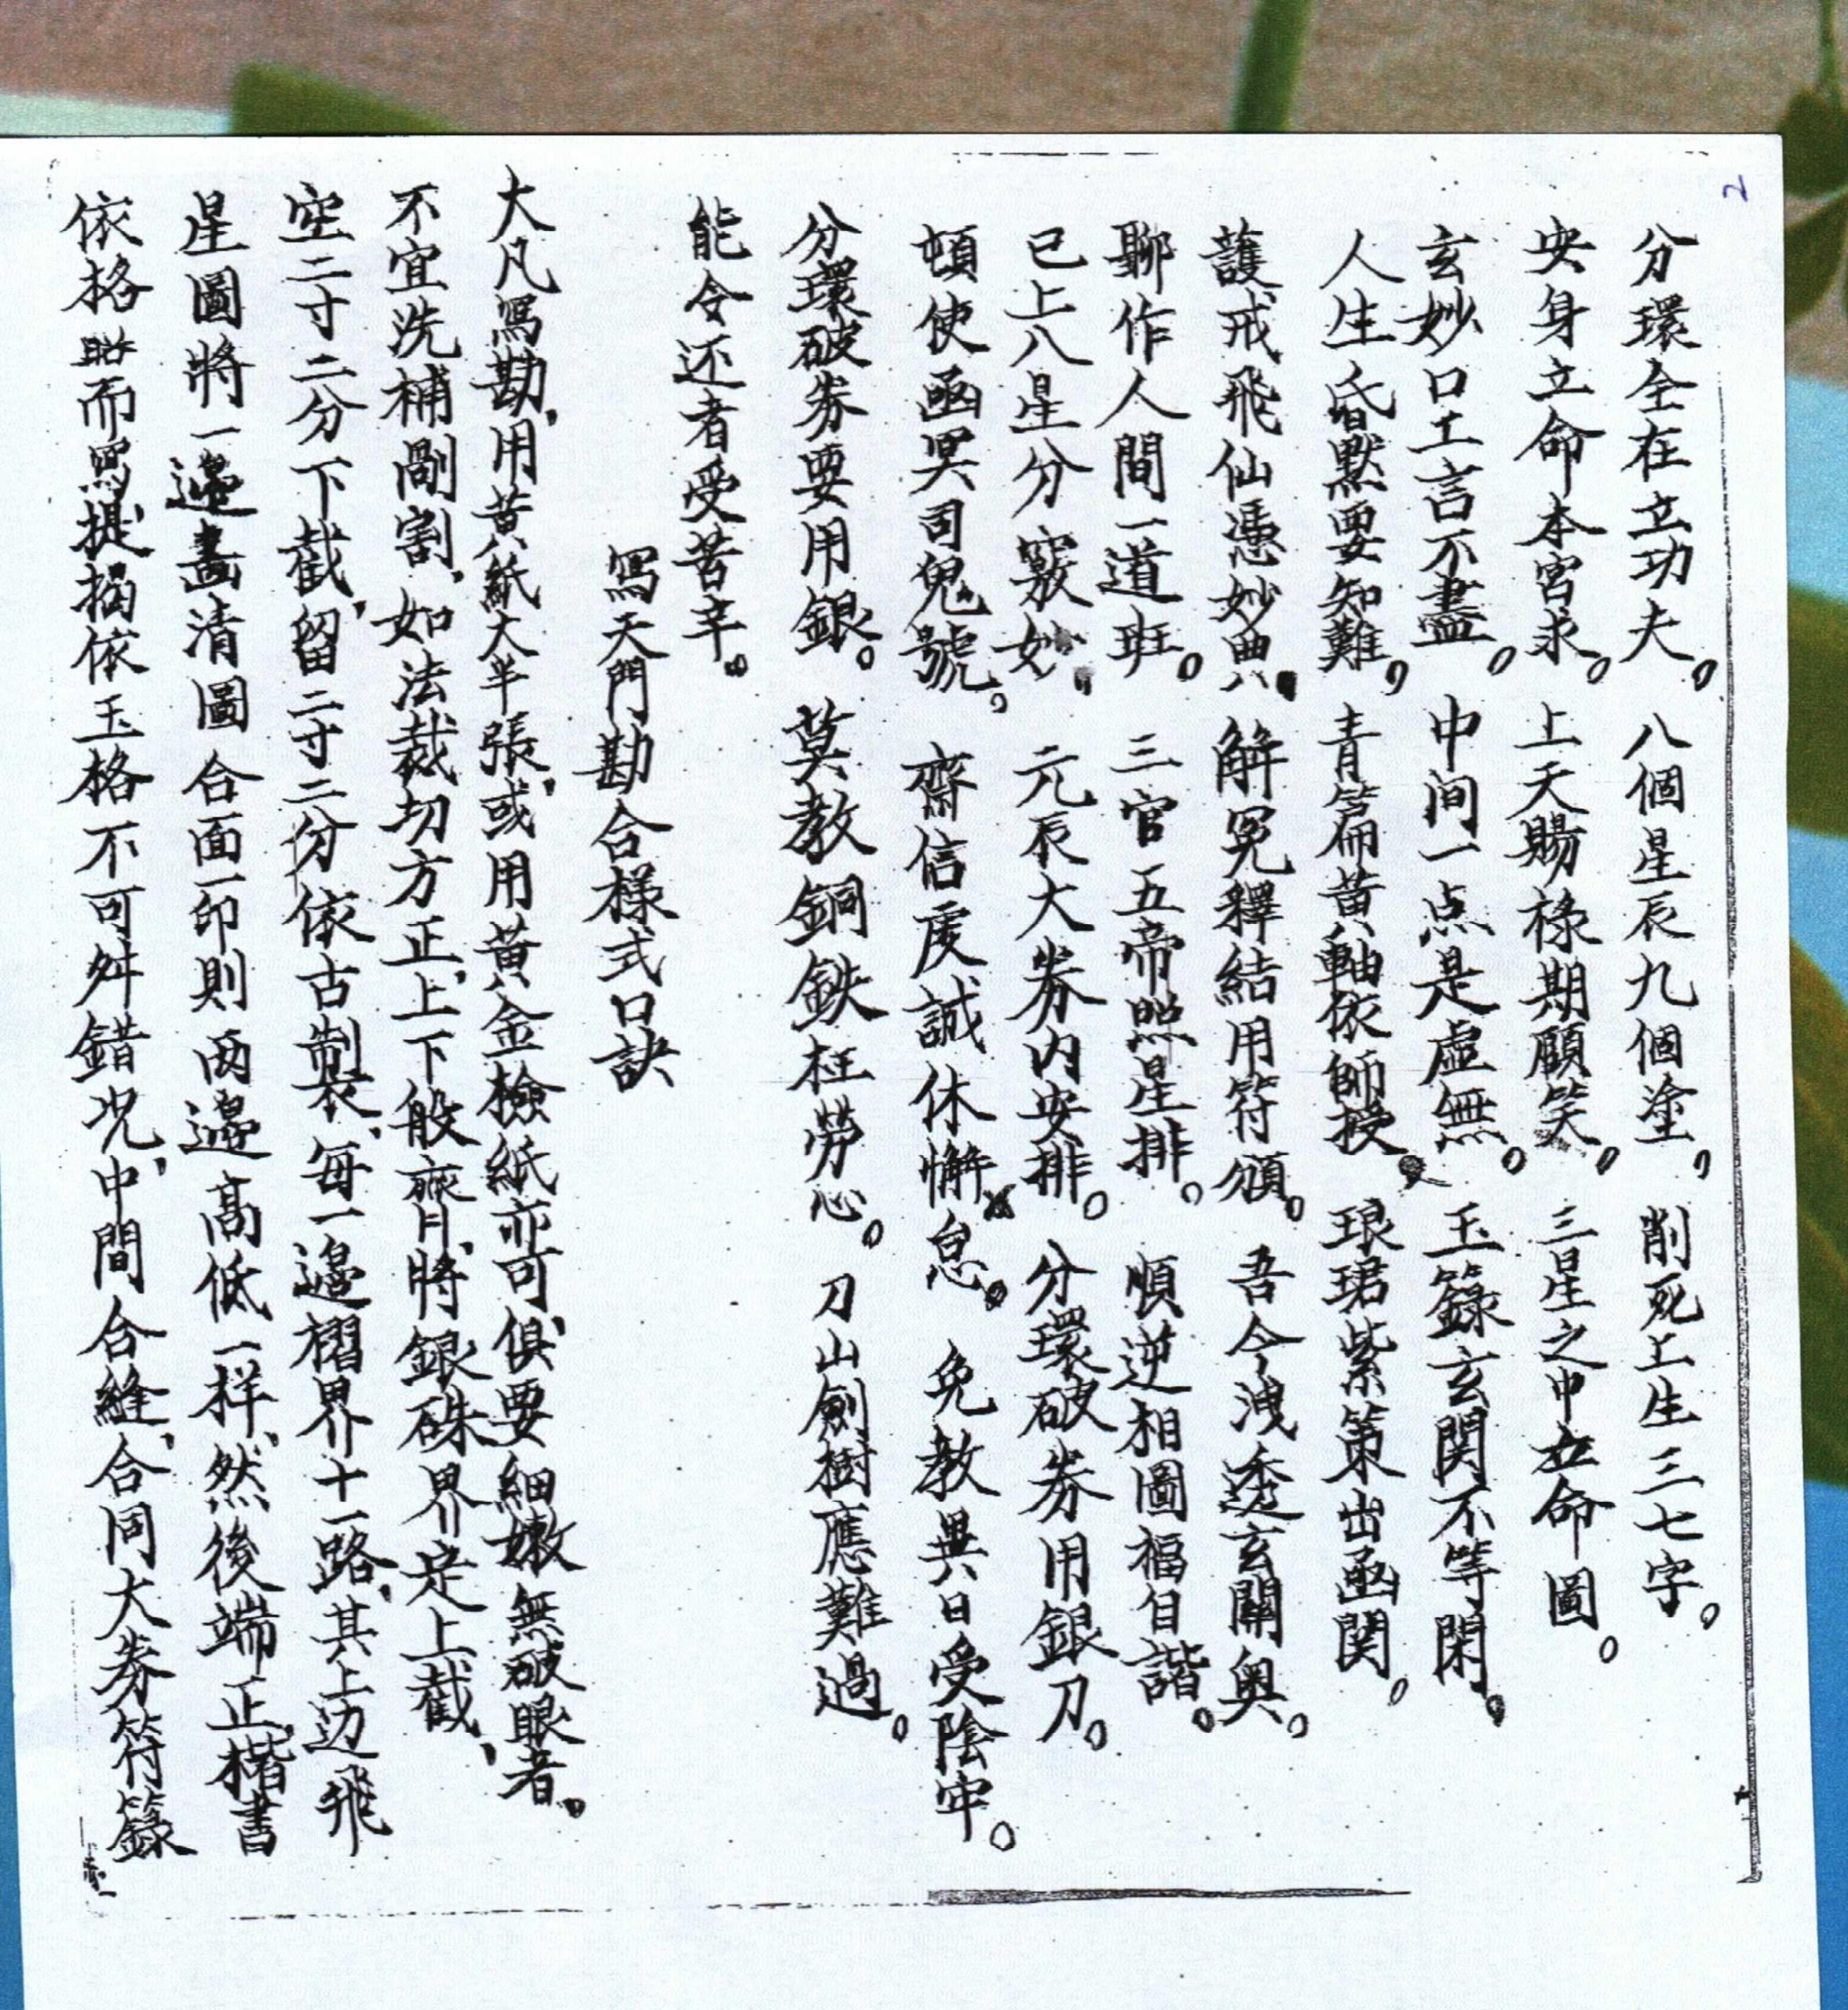 2
分環全在立功夫。八個星辰九個塗，削死上生三七字。
安身立命本宮求。上天賜祿期顧笑，三星之中立命圖。
玄妙口工言不盡。中间一点是虛無。玉籙玄関不等閑。
人生昏默要知難，青篇黄軸依師授。琅珺紫策出函関。
護戒飛仙憑妙典。解冤釋結用符頒。吾今洩透玄關奥。
聊作人間一道班。三官五帝照星排。順逆相圖福自諧。
已上八星分竅妙，元辰大券内安排。分環破券用銀刀。
頓使函冥司鬼號。齋信虔誠休懈怠。免教異日受陰牢。
分環破券要用銀。莫教銅鉄枉勞心。刀山劍樹應難過。
能令还者受苦辛。
寫天門勘合樣式口訣
大凡寫勘，用黄紙大半張，或用黄金檢紙亦可，俱要細嫩無破眼者。
不宜洗補剮割，如法裁切方正，上下般齊，將銀硃界定上截，
空二寸二分下截，留二寸二分依古製，每一邊褶界十一路，其上边飛
星圖將一邊畫清圖合面一印則两邊高低一样，然後端正，楷書
依格照而寫，提搨依玉格不可舛錯况，中間合縫，合同大券符籙